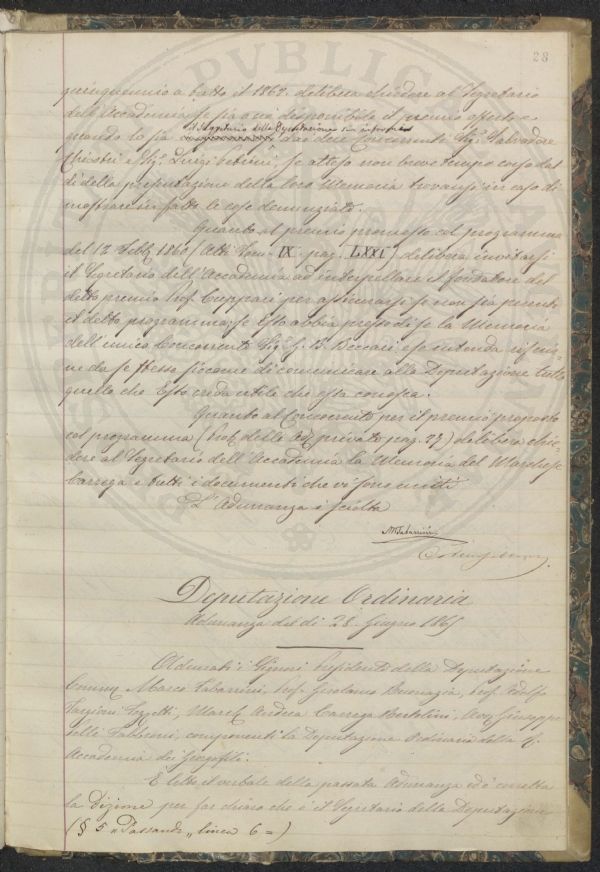 28
quinquennio a tutto il 1867. delibera chiedere al Segretario
dell'Accademia se sia ora disponibile il premio offerto e
quando lo sia il Segretario della Deputazione sia dai due Concorrenti Sig. Salvadore
e Sig. Luigi se atteso non breve tempo corso dal
dì della presentazione della loro Memoria trovansi in caso di
mostrare in fatto le cose denunziate.
Quanto al premio promosso col programma
del 12 Febb. 1860 (Atti Tom. IX. pag. LXXI) delibera invitarsi
il Segretario dell'Accademia ad interpellare il fondatore del
detto premio Prof. Cuppari per assicurarsi se
il detto programma, se Esso abbia presso di se la Memoria
dell'unico Concorrente Sig. G. B. e se intenda
da se stesso siccome di comunicare alla Deputazione tutto
quello che Esso creda utile che essa conosca.
Quanto al Concorrente per il premio proposto
col programma ( delle Ad. private pag. 27) delibera chie-
dere al Segretario dell'Accademia la Memoria del Marchese
Carrega e tutti i documenti che vi sono uniti
L'Adunanza è sciolta
M Tabarrini
Deputazione Ordinaria
Adunanza del dì 28. Giugno 1865
Adunati i Signori Presidente della Deputazione
Comm. Marco Tabarrini, Prof. Girolamo Buonazia, Prof. Adolfo
Targioni Tozzetti, March. Andrea Carrega Bertolini, Avv. Giuseppe
componenti la Deputazione Ordinaria della R.
Accademia dei Georgofili.
È letto il verbale della passata Adunanza ed è corretta
la dizione per far chiaro che è il Segretario della Deputazione
(§ 5 "Passando" linea 6 =)